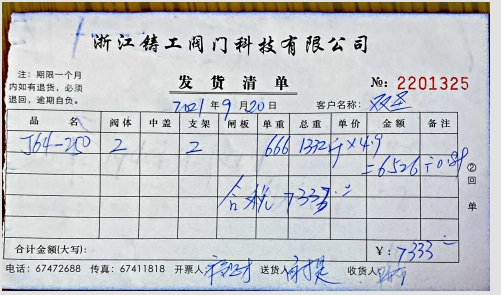 浙江铸工阀门科技有限公司
注：期限一个月内如有退货，必须退回，逾期自负。
发货清单
№: 2201325
2021年9月20日 客户名称：双圣
品名 阀体 中盖 支架 闸板 单重 总重 单价 金额 备注
J64-250 2 2 666 1332斤×4.9
=6526÷0.89
含税 7333
合计金额(大写)： ¥：7333
②回单
电话：67472688 传真：67411818 开票人 送货人 收货人